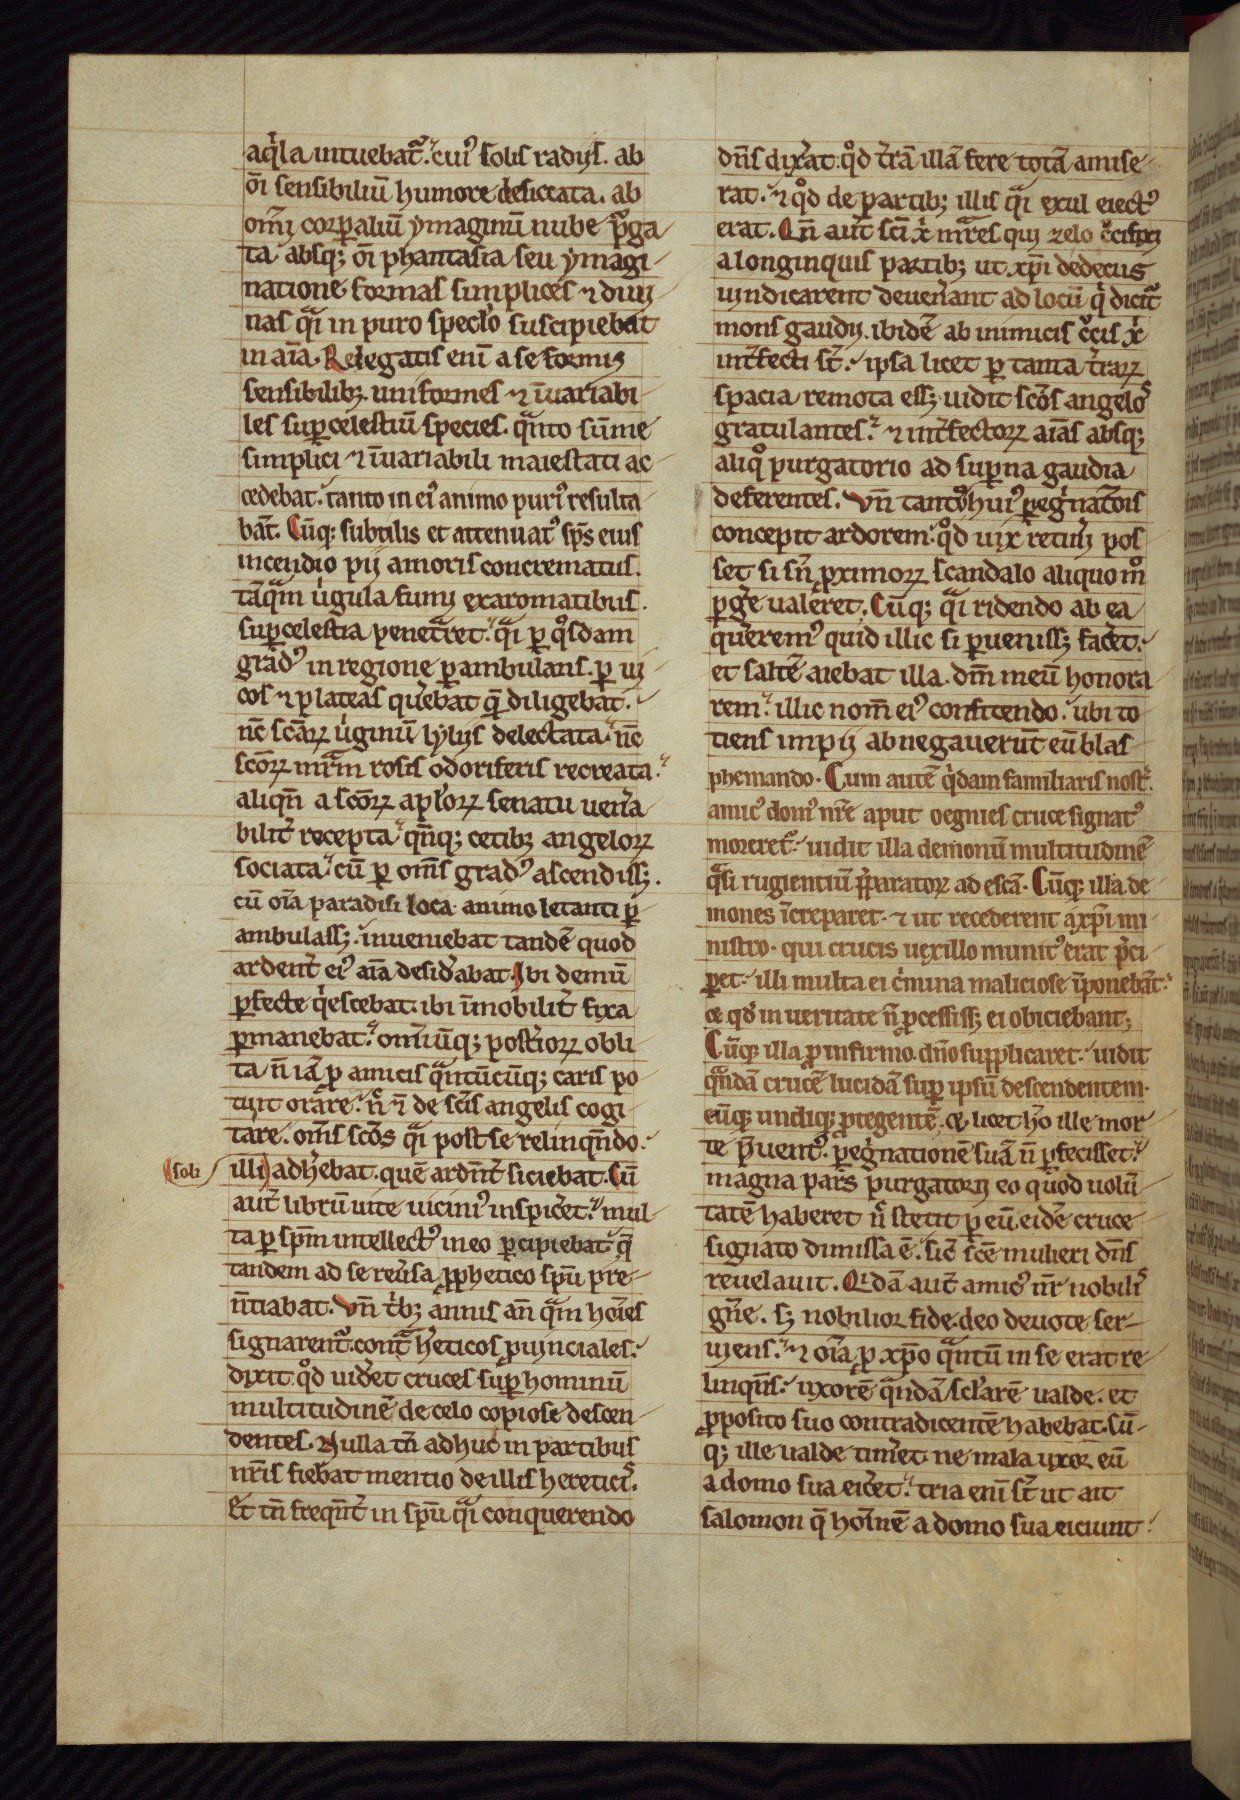 aq̓la intuebat᷑. cui᷒ solis radijs. ab
om̄i sensibiliū humore desiccata. ab
om̄i corꝑaliū ymaginū nube p᷑ga
ta absq; om̄i phantasia seu ymagi
natione formas simplices ⁊ diui
nas qᷓi in puro speclo suscipiebat
in aīa. Relegatis enī a se formis
sensibilibꝫ uniformes ⁊ īuariabi
les suꝑcelestiū species. qᷓnto sūme
simplici ⁊ īuariabili maiestati ac
cedebat. tanto in ei᷒ animo puri᷒ resulta
bāt. Cūq; subtilis et attenuat᷒ sp̄s eius
incendio pij amoris concrematus.
tāqᷓm u̓gula fumi exaromatibus.
suꝑcelestia penet᷑ret. qᷓi ꝑ qᷦsdam
grad᷒ in regione ꝑambulans. ꝑ ui
cos ⁊ plateas querebat quē diligebat.
nc̄ scāꝝ u̓ginū lylijs delectata. nc̄
scōꝝ mr̄m rosis odoriferis recreata.
aliqn̄ a scōꝝ aplōꝝ senatu uen̓a
bilit̓ recepta. qn̄q; cetibꝫ angeloꝝ
sociata. cū ꝑ om̄s grad᷒ ascendissꝫ.
cū oīa paradisi loca animo letanti ꝑ
ambulassꝫ. inueniebat tandē quod
ardent̓ ei᷒ aīa desid̓abat. Ibi demū
ꝑfecte q̓escebat. ibi īmobilit̓ fixa
ꝑmanebat. om̄iūq; post̓ioꝝ obli
ta n̄ iā ꝓ amicis qᷓntūcūq; caris po
tuit orare. n̓ ⁊ de scīs angelis cogi
tare. om̄s scōs qᷓi post se relinqn̄do.
illi adh̓ebat. quē ardent̓ siciebat. Cū
soli
aut̄ librū uite uicini᷒ inspic̓et. mul
ta ꝑ spm̄ intellect᷒ in eo ꝑcipiebat q̄
tandem ad se reu̓sa ꝓphetico spū pre
nūtiabat. Vn̄ t̓bꝫ annis an̄ qᷓm hoīes
signarent᷑. contᷓ h̓eticos ꝓuinciales.
dixit. qᷦd uid̓et cruces suꝑ hominū
multitudinē de celo copiose descen
dentes. Nulla tn̄ adhuc in partibus
nr̄is fiebat mentio de illis heretici᷒.
Et tn̄ freqn̄t̓ in spū qᷓi conquerendo
dn̄s dix̓at. qᷦd t̓rā illā fere totā amise
rat. ⁊ qᷦd de partibꝫ illis qᷓi exul eiect᷒
erat. Qn̄ aut̄ scī x̓ mr̄es qui zelo c̓cifixi
a longinquis partibꝫ ut xp̄i dedecus
uindicarent deuen̓ant ad locū q̓ dicit᷑
mons gaudij. ibidē ab inimicis c̓cis x̓
int̓fecti st̄. ipsa licet ꝑ tanta t̓raꝝ
spacia remota essꝫ. uidit scōs angelo᷒
gratulantes. ⁊ int̓fectoꝝ aīas absq;
aliqᷦ purgatorio ad suꝑna gaudia
deferentes. Vn̄ tantū hui᷒ ꝑegrinatōis
concepit ardorem. qᷦd uix retin̓i pos
set si sn̄ ꝓximoꝝ scandalo aliquo mᷦ
ꝑg̓e ual̓et. Cūq; qᷓi ridendo ab ea
quererem᷒ quid illic si ꝑuenissꝫ fac̓et.
et saltē aiebat illa. dm̄ meū honora
rem. illic nom̄ ei᷒ confitendo. ubi to
tiens impij abnegauerūt eū blas
phemando. Cum autē q̓dam familiaris nost᷒.
amic᷒ dom᷒ nr̄e aput oegnies cruce signat᷒
moreret᷑. uidit illa demonū multitudinē
qᷓsi rugientiū p̄paratoꝝ ad escā. Cūq; illa de
mones īcreparet. ⁊ ut recederent a xp̄i mi
nistro. qui crucis uexillo munit᷒ erat p̄ci
ꝑet. illi multa ei c̓mina maliciose īponebāt.
ce qd̓ in ueritate n̄ ꝓcessissꝫ ei obiciebant.
Cūq; illa ꝓ infirmo dn̄o supplicaret. uidit
qᷓndā crucē lucidā suꝑ ipsū descendentem.
eūq; undiq; ꝓtegentē. ⁊ licet h̓o ille mor
te p̄uent᷒. ꝑegrinationē suā n̄ ꝑfecisset.
magna pars purgatorij eo quod uolū
tatē haberet n̓ stetit ꝑ eū. eidē cruce
signato dimissa ē. sic̄ scē mulieri dn̄s
reuelauit. Qidā aut̄ amic᷒ nr̄ nobili᷒
gn̄e. sꝫ nobilior fide. deo deuote ser
uiens. ⁊ oīa ꝓ xp̄o qᷓntū in se erat re
linqn̄s. uxorē qᷓndā seclarē ualde. et
ꝓposito suo contradicentē habebat. Cū
q; ille ualde tim̓et ne mala uxor eū
a domo sua eic̓et. tria enī st̄ ut ait
salomon q̄ hoīnē a domo sua eiciunt.